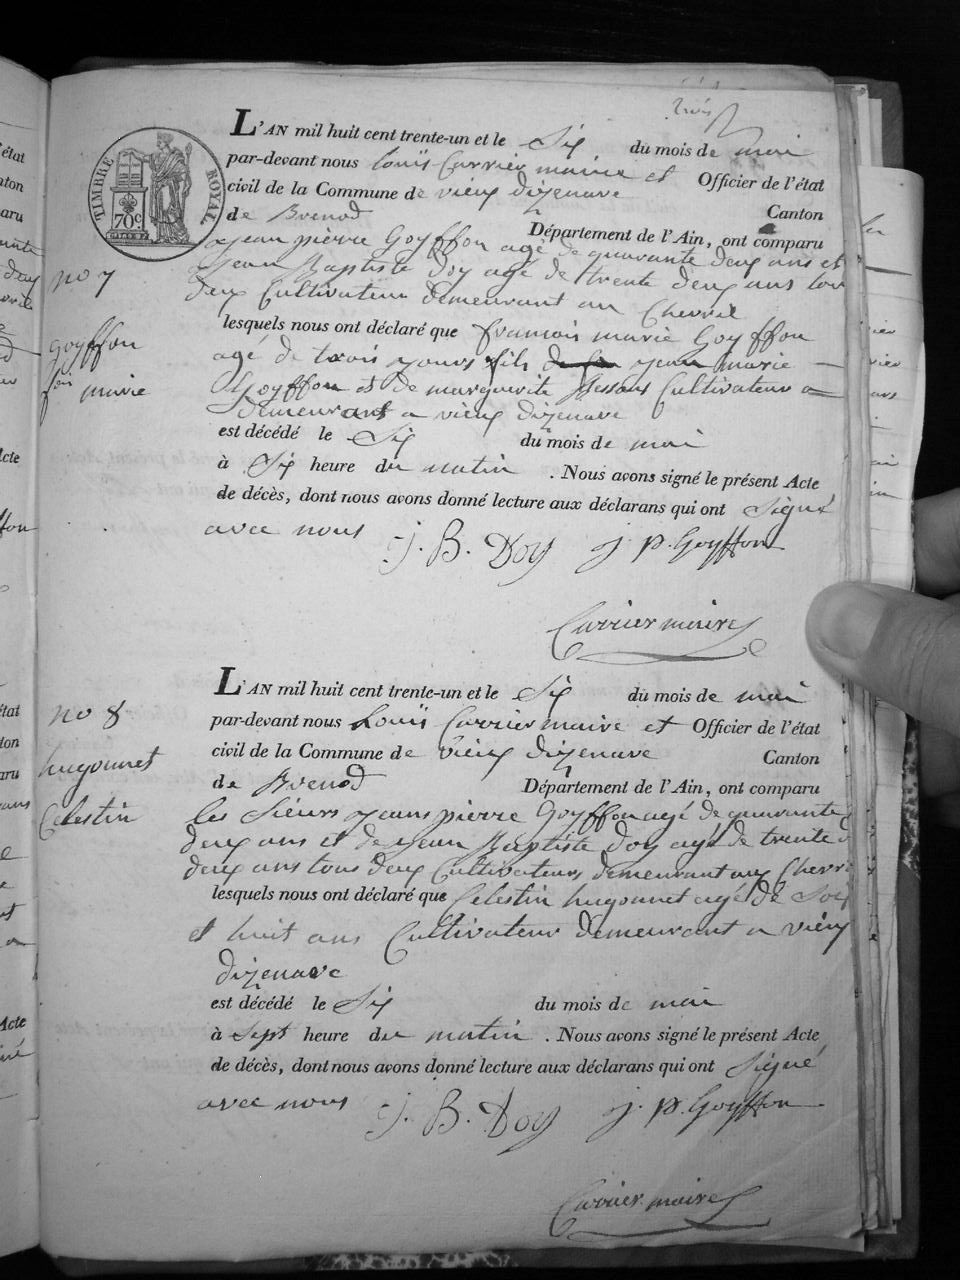 trois
TIMBRE ROYAL
70c
L'AN mil huit cent trente-un et le Six du mois de mai
par-devant nous Louis Carrier maire et Officier de l'état
civil de la Commune de vieux dizenave Canton
de Brenod Département de l'Ain, ont comparu
jean pierre Goyffon agé de quarante deux ans et
jean Baptiste Doy agé de trente deux ans tous
deux Cultivateur demeurant au Chevril
lesquels nous ont déclaré que francois marie Goyffon
agé de trois jours fils jean marie
Goyffon et de marguerite Cultivateur a
demeurant a vieux dizenave
est décédé le Six du mois de mai
à Six heure du matin . Nous avons signé le présent Acte
de décès, dont nous avons donné lecture aux déclarans qui ont Signé
avec nous J. B. Doy J. P. Goyffon
Carrier maire
no 7
goyffon
fois marie
L'AN mil huit cent trente-un et le Six du mois de mai
par-devant nous Louis Carrier maire et Officier de l'état
civil de la Commune de vieux dizenave Canton
de Brenod Département de l'Ain, ont comparu
les Sieurs jean pierre Goyffon agé de quarante
deux ans et de jean Baptiste Doy agé de trente
deux ans tous deux Cultivateurs demeurant aux Chevri
lesquels nous ont déclaré que Celestin hugonnet agé de Soix
et huit ans Cultivateur demeurant a vieux
dizenave
est décédé le Six du mois de mai
à Sept heure du matin . Nous avons signé le présent Acte
de décès, dont nous avons donné lecture aux déclarans qui ont Signé
avec nous J. B. Doy J. P. Goyffon
Carrier maire
no 8
hugonnet
Celestin